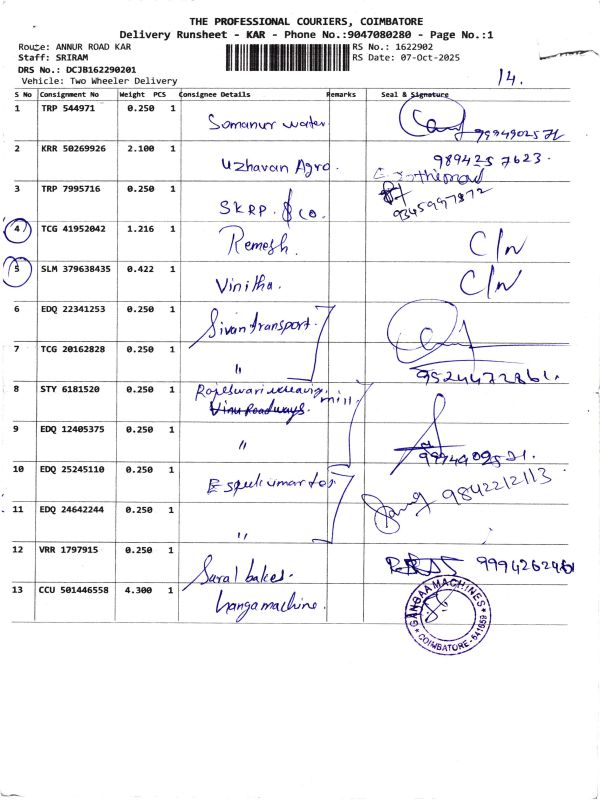 THE PROFESSIONAL COURIERS, COIMBATORE
Delivery Runsheet - KAR - Phone No.:9047080280 - Page No.:1
Route: ANNUR ROAD KAR RS No.: 1622902
Staff: SRIRAM RS Date: 07-Oct-2025
DRS No.: DCJB162290201
Vehicle: Two Wheeler Delivery 14.
S No Consignment No Weight PCS Consignee Details Remarks Seal & Signature
1 TRP 544971 0.250 1 Somanur water 9994902571
2 KRR 50269926 2.100 1 Uzhavan Agro. 9894257623.
3 TRP 7995716 0.250 1 SKRP. & co. 9345997872
4 TCG 41952042 1.216 1 Remesh. C/N
5 SLM 379638435 0.422 1 Vinitha. C/N
6 EDQ 22341253 0.250 1 Sivan transport.
7 TCG 20162828 0.250 1 " 9524472861.
8 STY 6181520 0.250 1 Rajeswari weaving mill.
Vinu Roadways.
9 EDQ 12405375 0.250 1 " 9994902571.
10 EDQ 25245110 0.250 1 9842212113
11 EDQ 24642244 0.250 1 "
12 VRR 1797915 0.250 1 Sural bakes. 9994262461
13 CCU 501446558 4.300 1 hanga machine.
GANGAA MACHINES
COIMBATORE - 641659